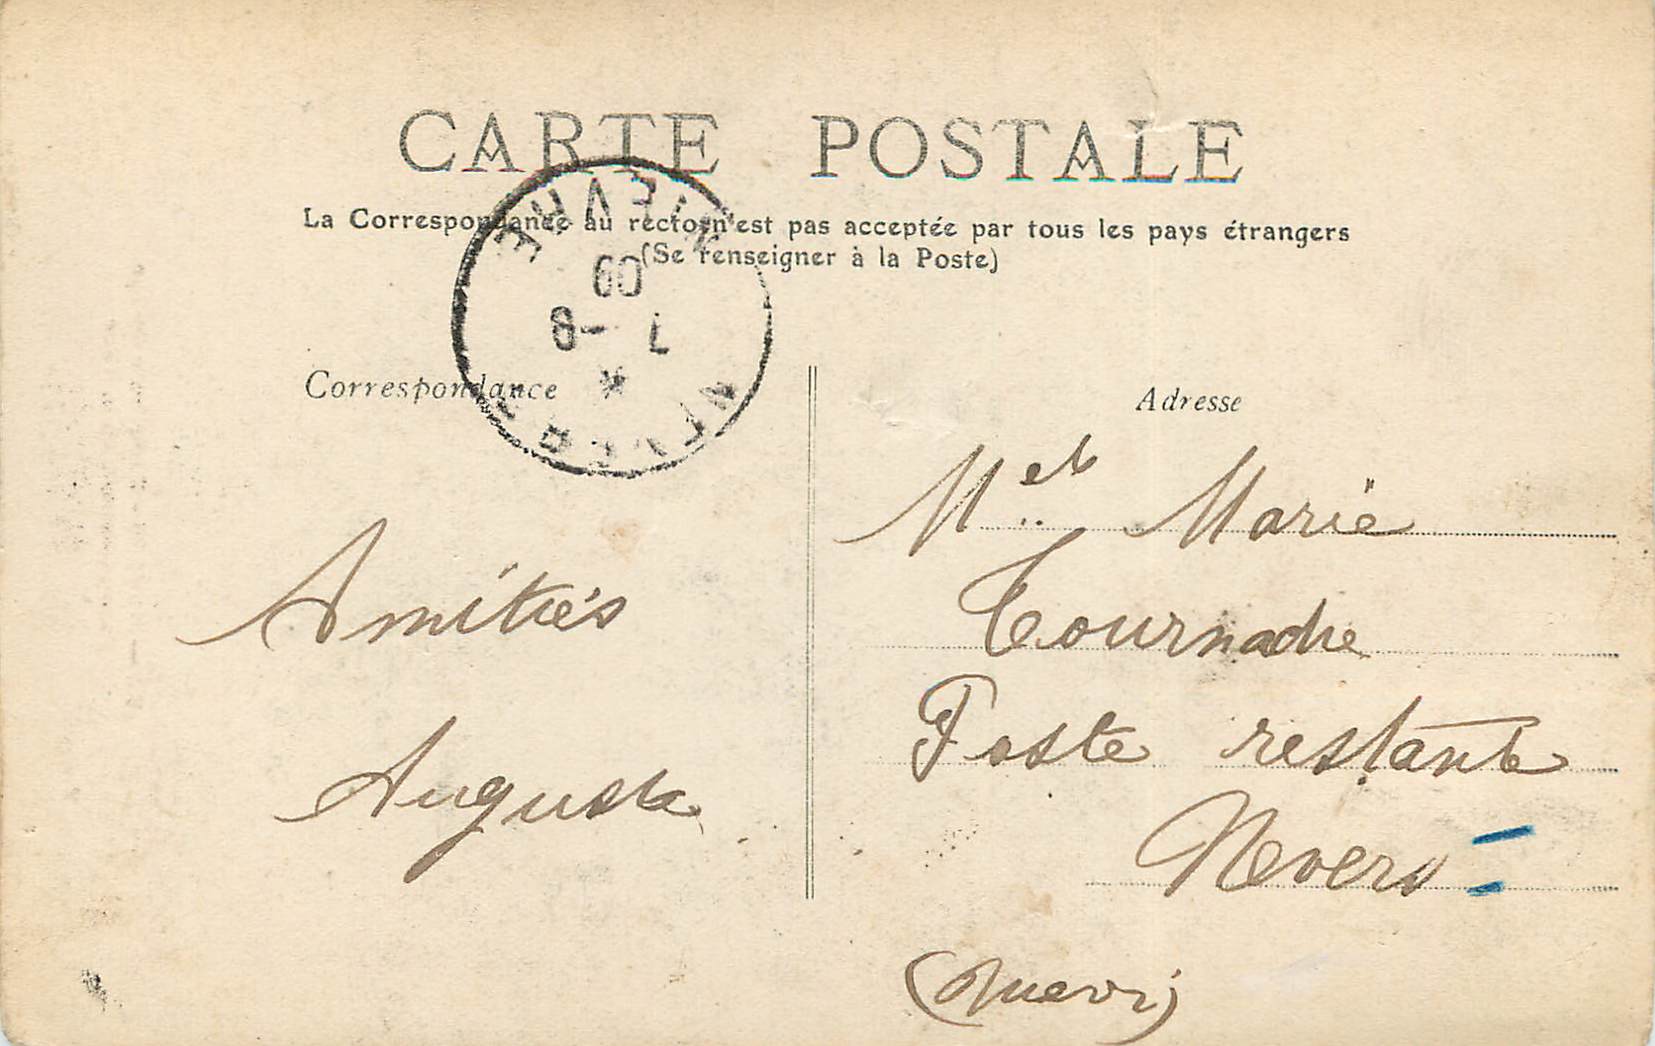 CARTE POSTALE
La Correspondance au recto n'est pas acceptée par tous les pays étrangers
(Se renseigner à la Poste)
NIEVRE
7 -8
09
NEVERS
Correspondance
Adresse
Amitiés
Augusta
Melle Marie
Tournadre
Poste restante
Nevers